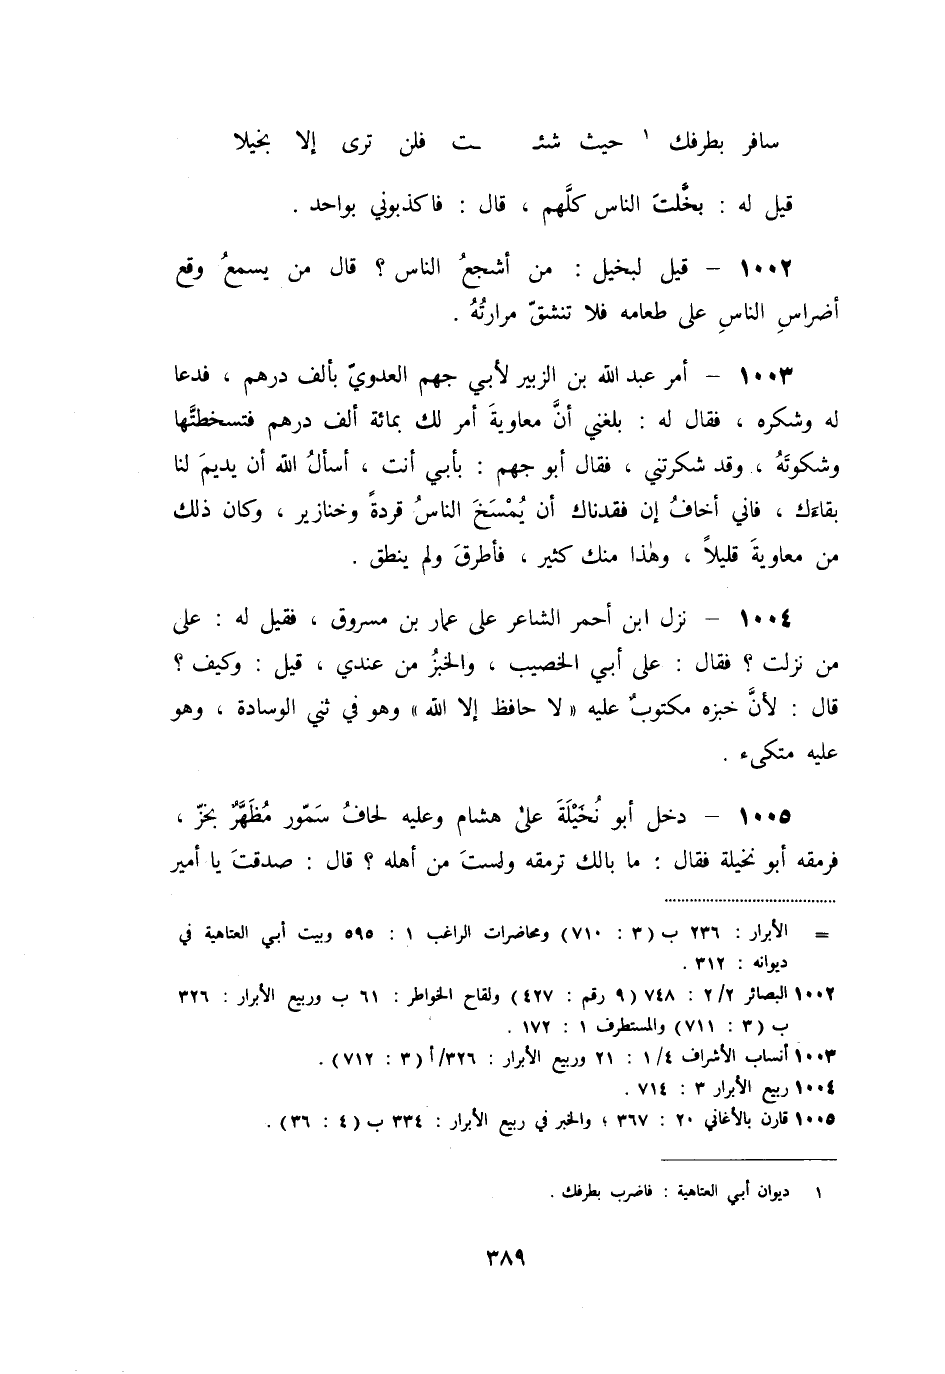 سافر بطرفك ١ حيث شئـ ـت فلن ترى إلا بخيلا
قيل له : بخَّلتَ الناس كلَّهم ، قال : فاكذبوني بواحد .
١٠٠٢ – قيل لبخيل : من أشجعُ الناس ؟ قال من يسمعُ وقع
أضراسِ الناسِ على طعامه فلا تنشقّ مرارتُهُ .
١٠٠٣ – أمر عبد الله بن الزبير لأبي جهم العدويّ بألف درهم ، فدعا
له وشكره ، فقال له : بلغني أنَّ معاويةَ أمر لك بمائة ألف درهم فتسخطتَّها
وشكوتَهُ ، وقد شكرتني ، فقال أبو جهم : بأبي أنت ، أسألُ الله أن يديمَ لنا
بقاءَك ، فاني أخافُ إن فقدناك أن يُمْسَخَ الناسُ قردةً وخنازير ، وكان ذلك
من معاويةَ قليلاً ، وهٰذا منك كثير ، فأطرقَ ولم ينطق .
١٠٠٤ – نزل ابن أحمر الشاعر على عمار بن مسروق ، فقيل له : على
من نزلت ؟ فقال : على أبي الخصيب ، والخبزُ من عندي ، قيل : وكيف ؟
قال : لأنَّ خبزه مكتوبٌ عليه « لا حافظ إلا الله » وهو في ثني الوسادة ، وهو
عليه متكىء .
١٠٠٥ – دخل أبو نُخَيْلَةَ علىٰ هشام وعليه لحافُ سَمّور مُظَهَّرٌ بخزّ ،
فرمقه أبو نخيلة فقال : ما بالك ترمقه ولستَ من أهله ؟ قال : صدقتَ يا أمير
= الأبرار : ٢٣٦ ب (٣ : ٧١٠) ومحاضرات الراغب ١ : ٥٩٥ وبيت أبي العتاهية في
ديوانه : ٣١٢ .
١٠٠٢ البصائر ٢/٢ : ٧٤٨ (٩ رقم : ٤٢٧) ولقاح الخواطر : ٦١ ب وربيع الأبرار : ٣٢٦
ب (٣ : ٧١١) والمستطرف ١ : ١٧٢ .
١٠٠٣ أنساب الأشراف ١/٤ : ٢١ وربيع الأبرار : ٣٢٦/أ (٣ : ٧١٢) .
١٠٠٤ ربيع الأبرار ٣ : ٧١٤ .
١٠٠٥ قارن بالأغاني ٢٠ : ٣٦٧ ؛ والخبر في ربيع الأبرار : ٣٣٤ ب (٤ : ٣٦) .
١ ديوان أبي العتاهية : فاضرب بطرفك .
٣٨٩